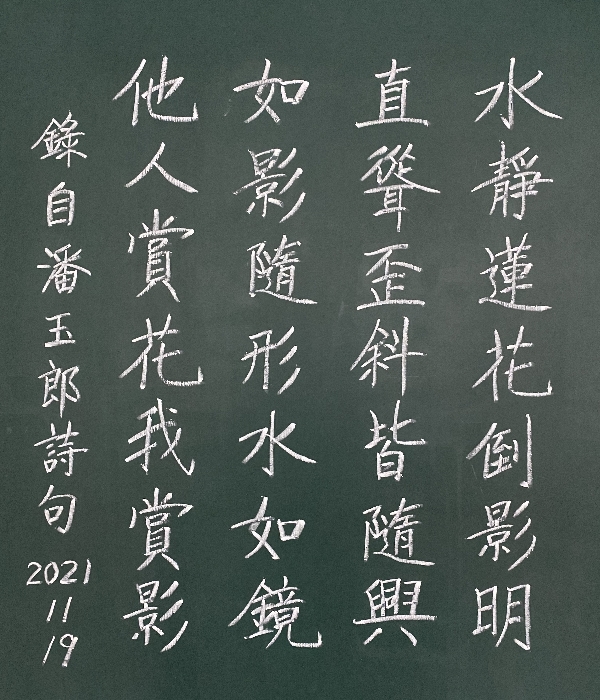 水靜蓮花倒影明
直聳歪斜皆隨興
如影隨形水如鏡
他人賞花我賞影
錄自潘玉郎詩句
2021
11
19